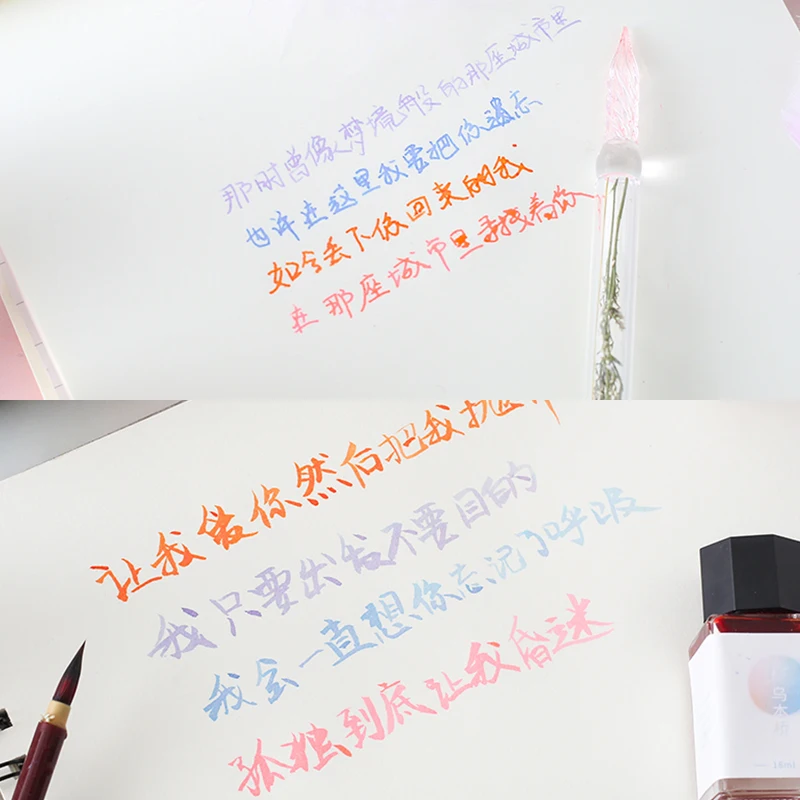 那时曾像梦境般的那座城市里
也许在这里我要把你遗忘
如今丢下你回来的我
在那座城市里寻找着你
让我爱你然后把我抛
我只要出发不要目的
我会一直想你忘记了呼吸
孤独到底让我昏迷
乌木桥
18ml